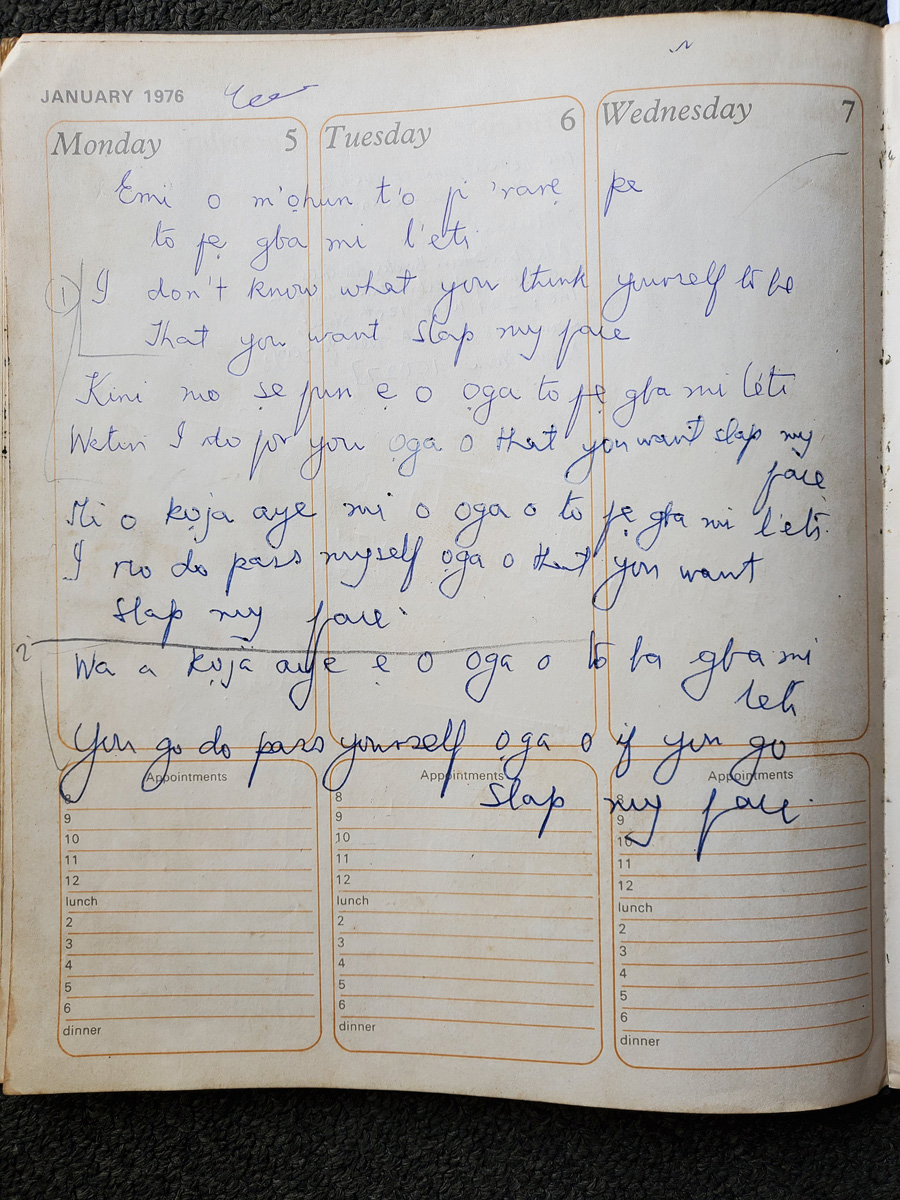 JANUARY 1976
Monday 5 Tuesday 6 Wednesday 7
Emi o m'ọhun t'o fi 'rarẹ pe
to fẹ gba mi l'eti
① I don't know what you think yourself to be
That you want slap my face
Kini mo ṣe fun ẹ o ọga to fẹ gba mi léti
Wetin I do for you ọga o that you want slap my
face
Mi o kọja aye mi o ọga o to fẹ gba mi l'eti
I no do pass myself ọga o that you want
slap my face.
2 Wa a kọja aye ẹ o ọga o to ba gba mi
leti
You go do pass yourself ọga o if you go
slap my face.
Appointments Appointments Appointments
8 8 8
9 9 9
10 10 10
11 11 11
12 12 12
lunch lunch lunch
2 2 2
3 3 3
4 4 4
5 5 5
6 6 6
dinner dinner dinner